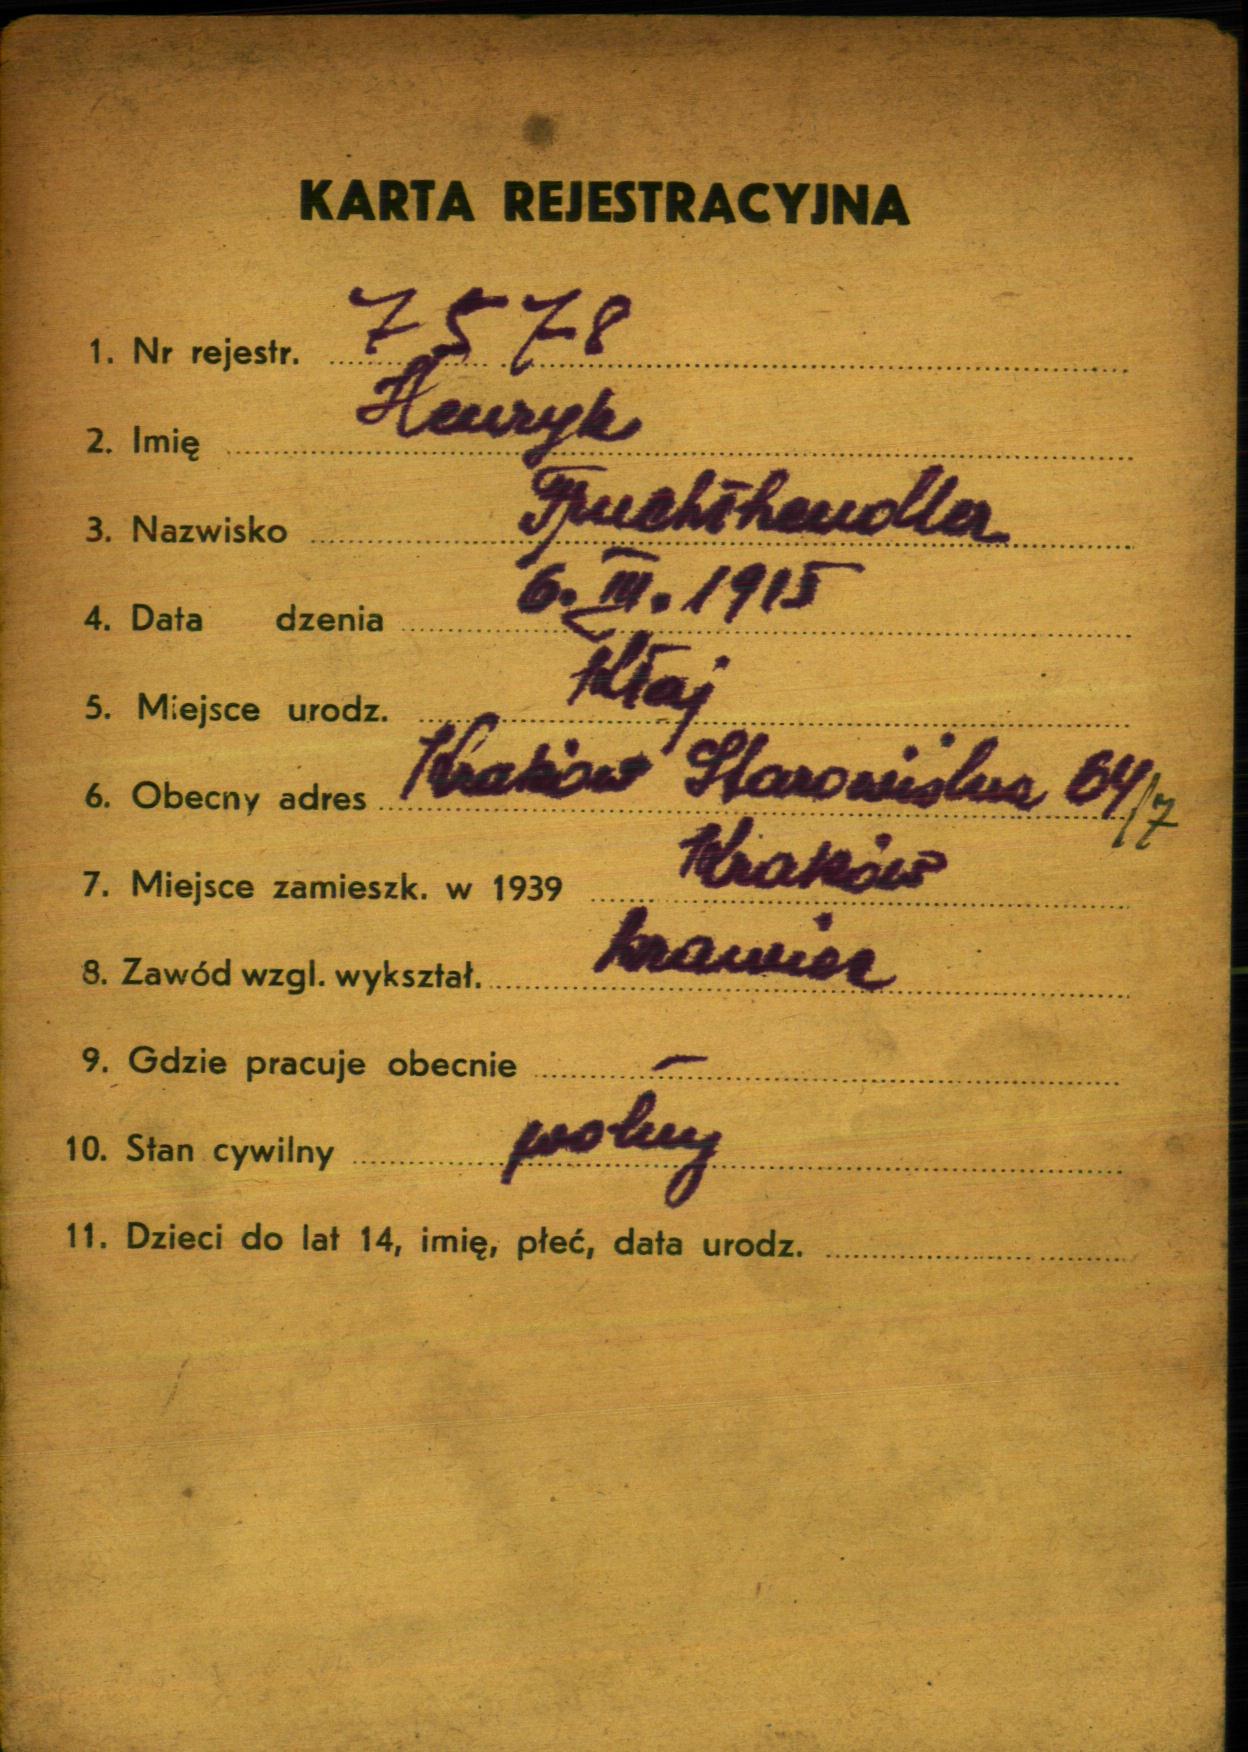 KARTA REJESTRACYJNA
1. Nr rejestr. 7578
2. Imię Henryk
3. Nazwisko Fruchthendler
4. Data dzenia 6. III. 1915
5. Miejsce urodz. Kłaj
6. Obecny adres Kraków Starowiślna 64/7
7. Miejsce zamieszk. w 1939 Kraków
8. Zawód wzgl. wykształ. krawiec
9. Gdzie pracuje obecnie —
10. Stan cywilny wolny
11. Dzieci do lat 14, imię, płeć, data urodz.